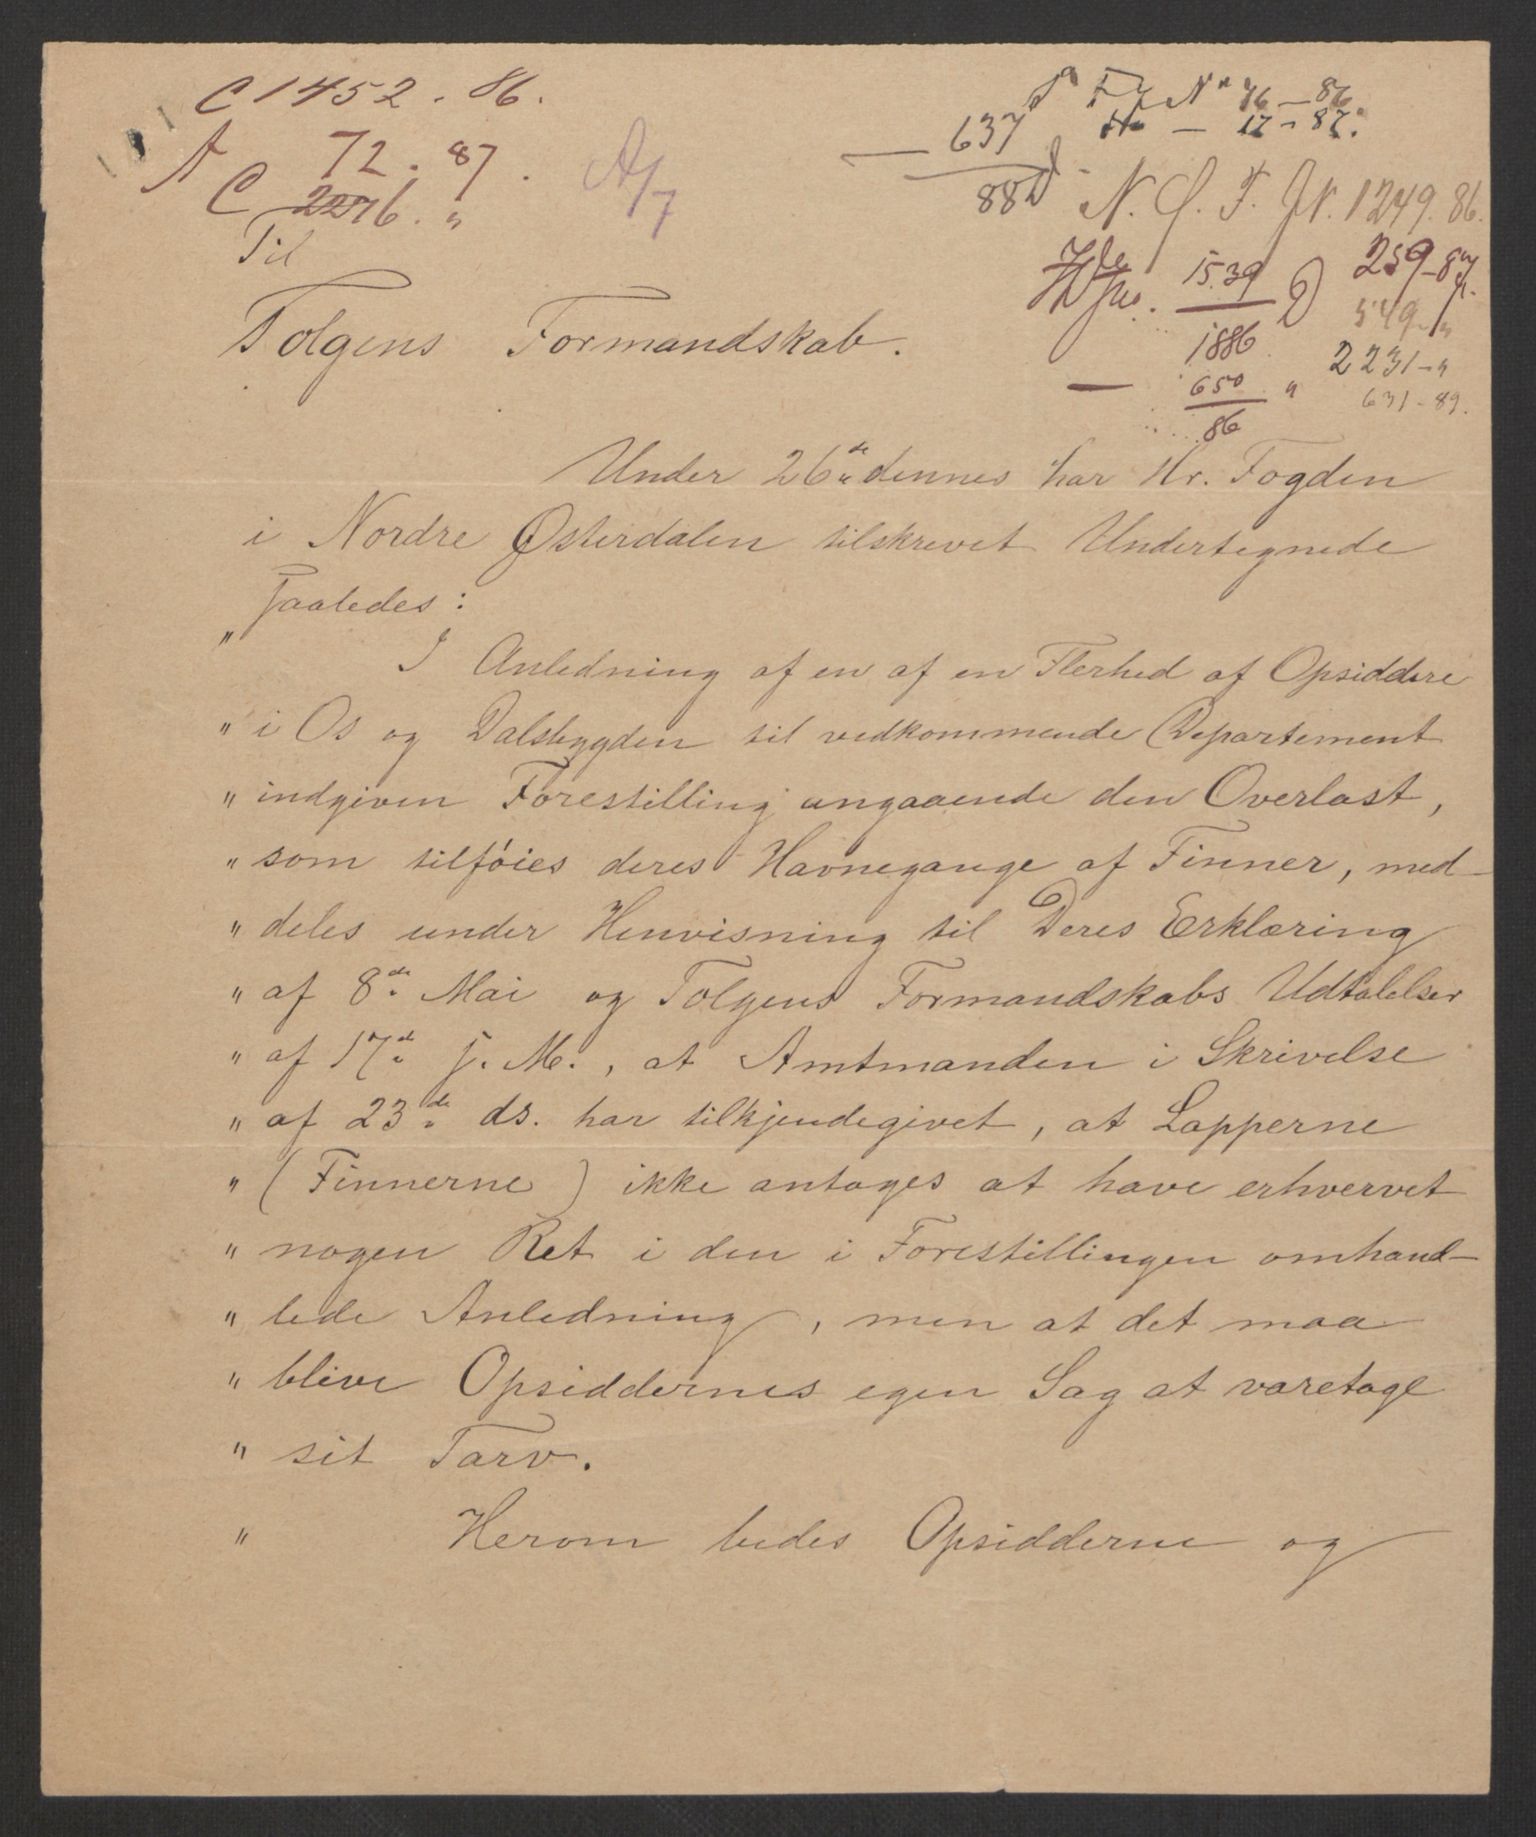 C 1452. 86.
A 72. 87.
C 2276. "
A/7
637
882
No 76 - 86.
Do - 12 - 87.
N. Ø. F. JN. 1249. 86.
1539
1886
259-87
549 - "
2231 - "
— 650 "
86
631-89.
Til
Tolgens Formandskab.
Under 26de dennes har Hr. Fogden
i Nordre Østerdalen tilskrevet Undertegnede
saaledes:
" I Anledning af en af en Flerhed af Opsiddere
" i Os og Dalsbygden til vedkommende Departement
" indgiven Forestilling angaaende den Overlast,
" som tilføies deres Havnegange af Finner, med-
" deles under Henvisning til Deres Erklæring
" af 8de Mai og Tolgens Formandskabs Udtalelser
" af 17de f. M., at Amtmanden i Skrivelse
" af 23de ds. har tilkjendegivet, at Lapperne
" (Finnerne) ikke antages at have erhvervet
" nogen Ret i den i Forestillingen omhand-
" lede Anledning, men at det maa
" blive Opsiddernes egen Sag at varetage
" sit Tarv.
" Herom bedes Opsidderne og